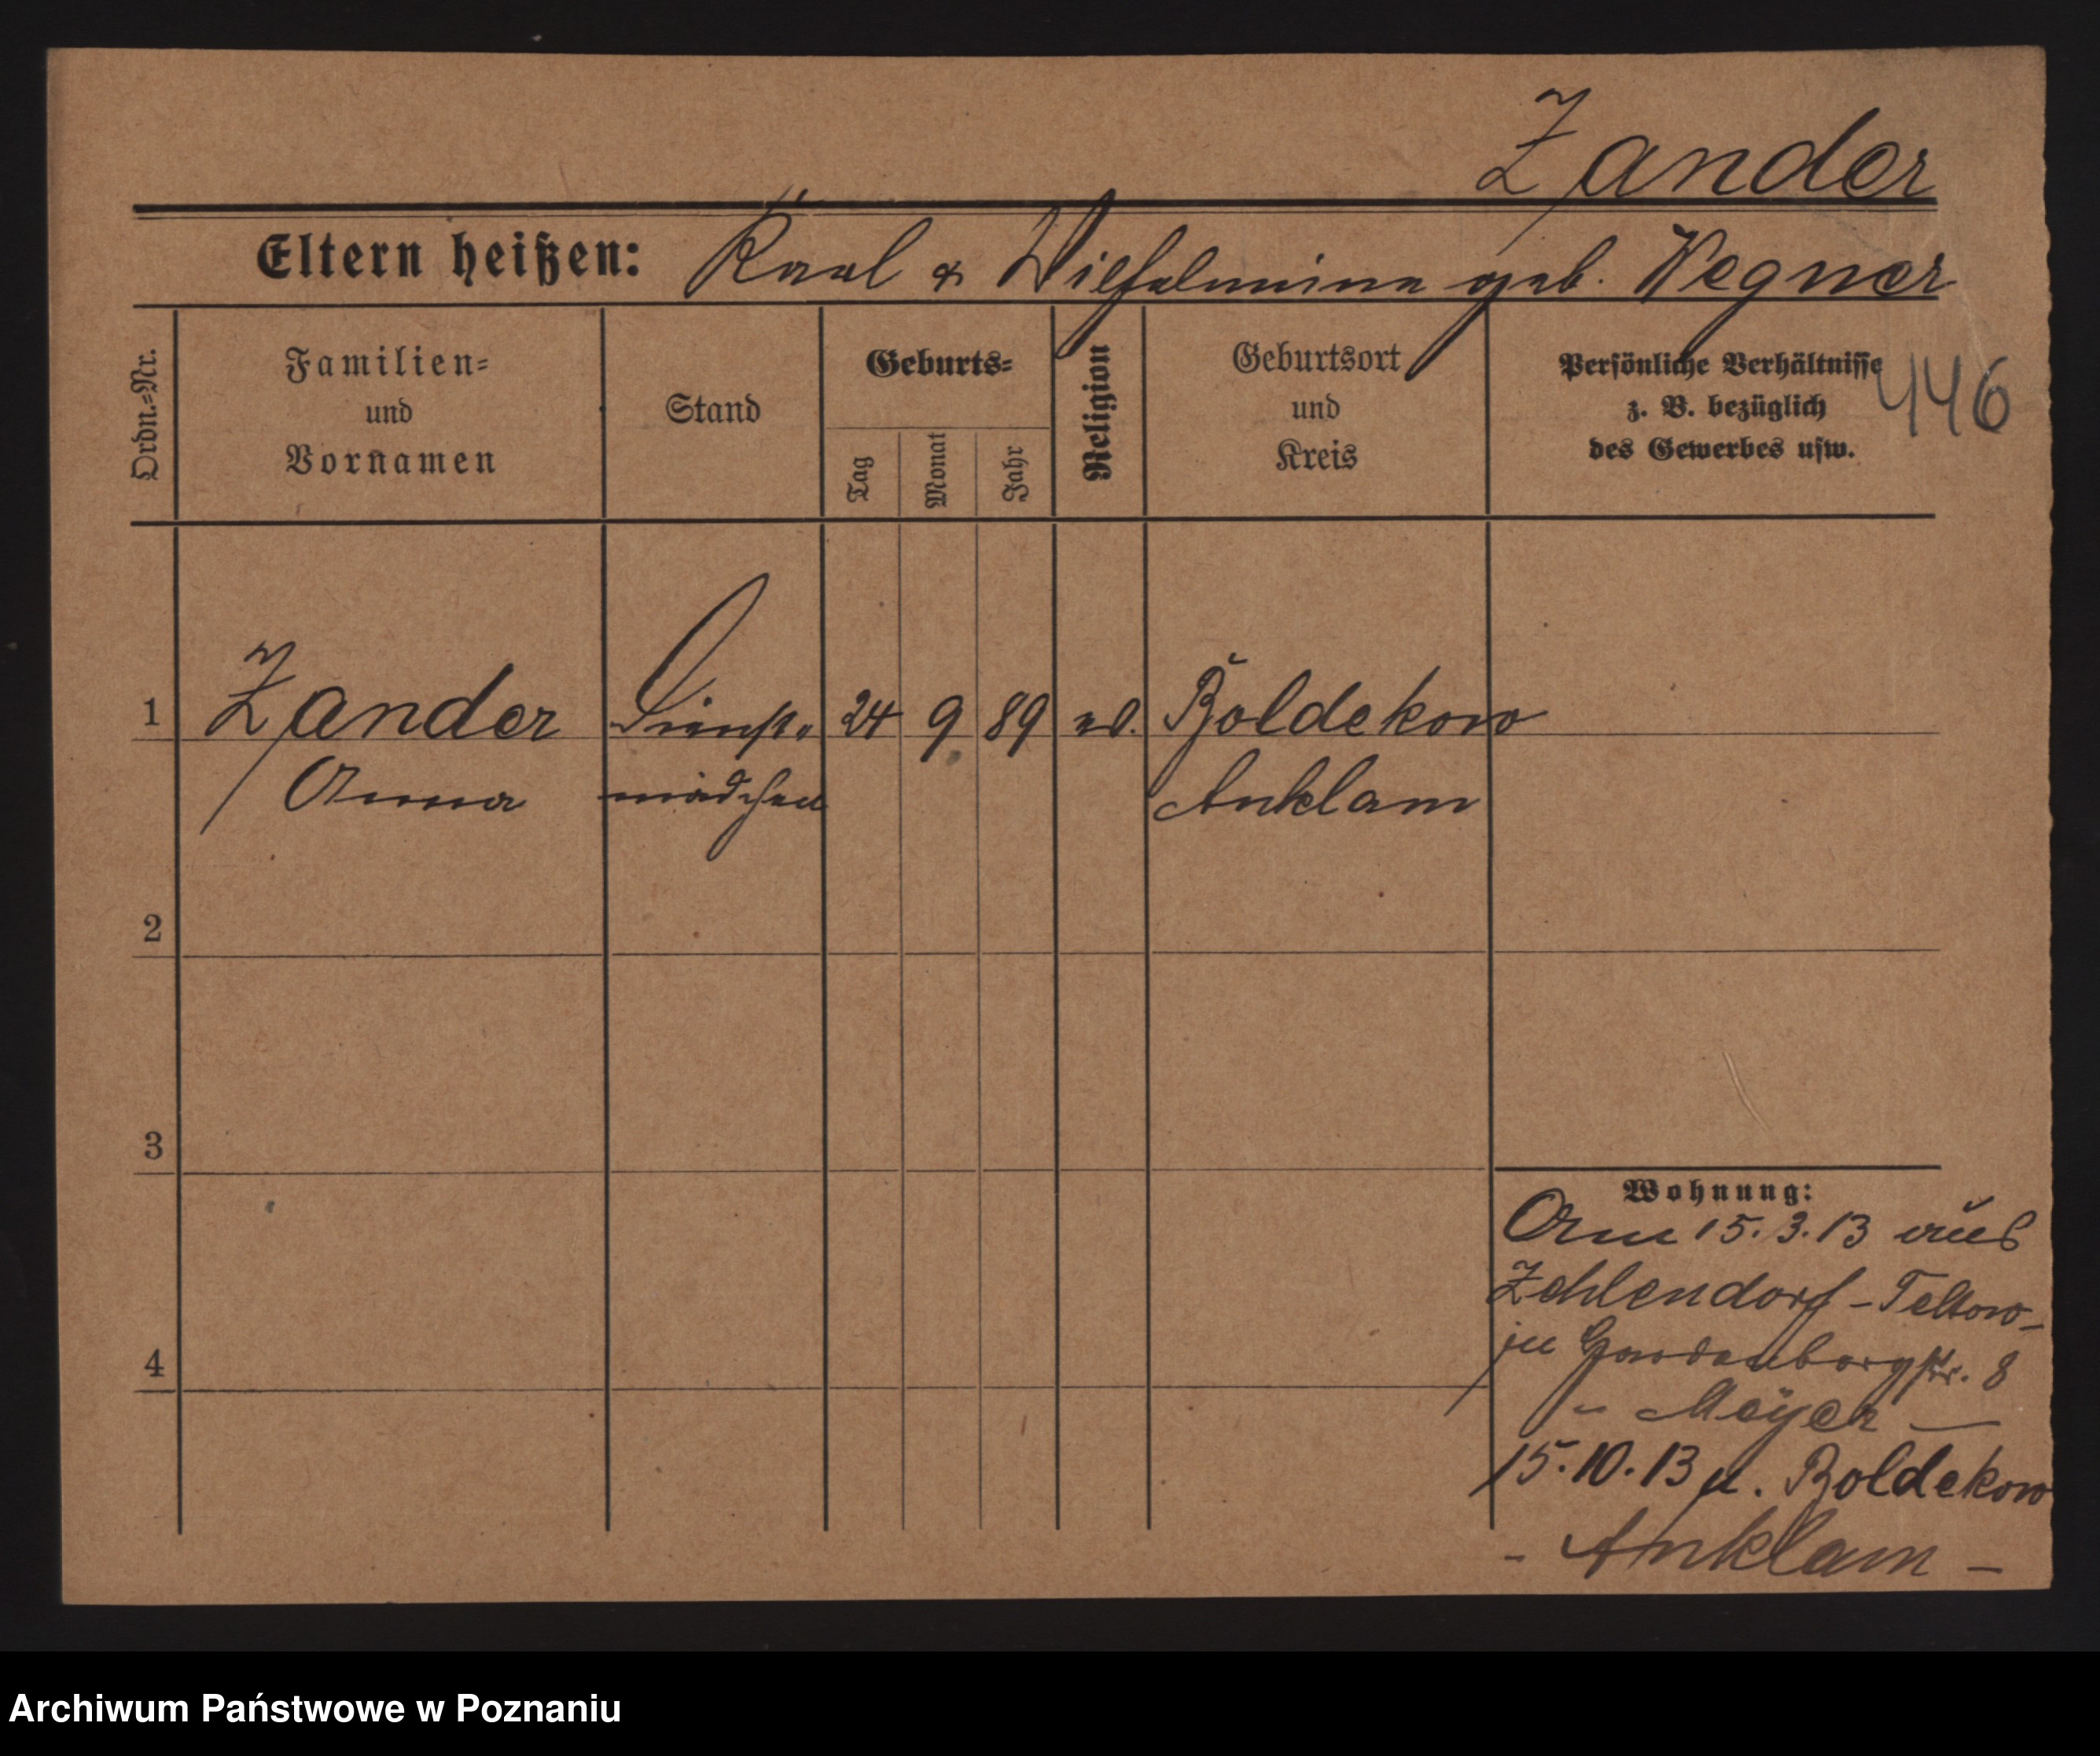 Zander
Eltern heißen: Karl & Wilhelmine geb. Wegner
446
Ordn.-Nr.
Familien-
und
Vornamen
Stand
Geburts-
Tag
Monat
Jahr
Religion
Geburtsort
und
Kreis
Persönliche Verhältnisse
z. B. bezüglich
des Gewerbes usw.
1 Zander Dienst- 24 9 89 ev. Boldekow
Anna mädchen Anklam
2
3
4
Wohnung:
Am 15.3.13 aus
Zehlendorf - Teltow -
zu 8
- Meyer -
15.10.13 n. Boldekow
- Anklam -
Archiwum Państwowe w Poznaniu